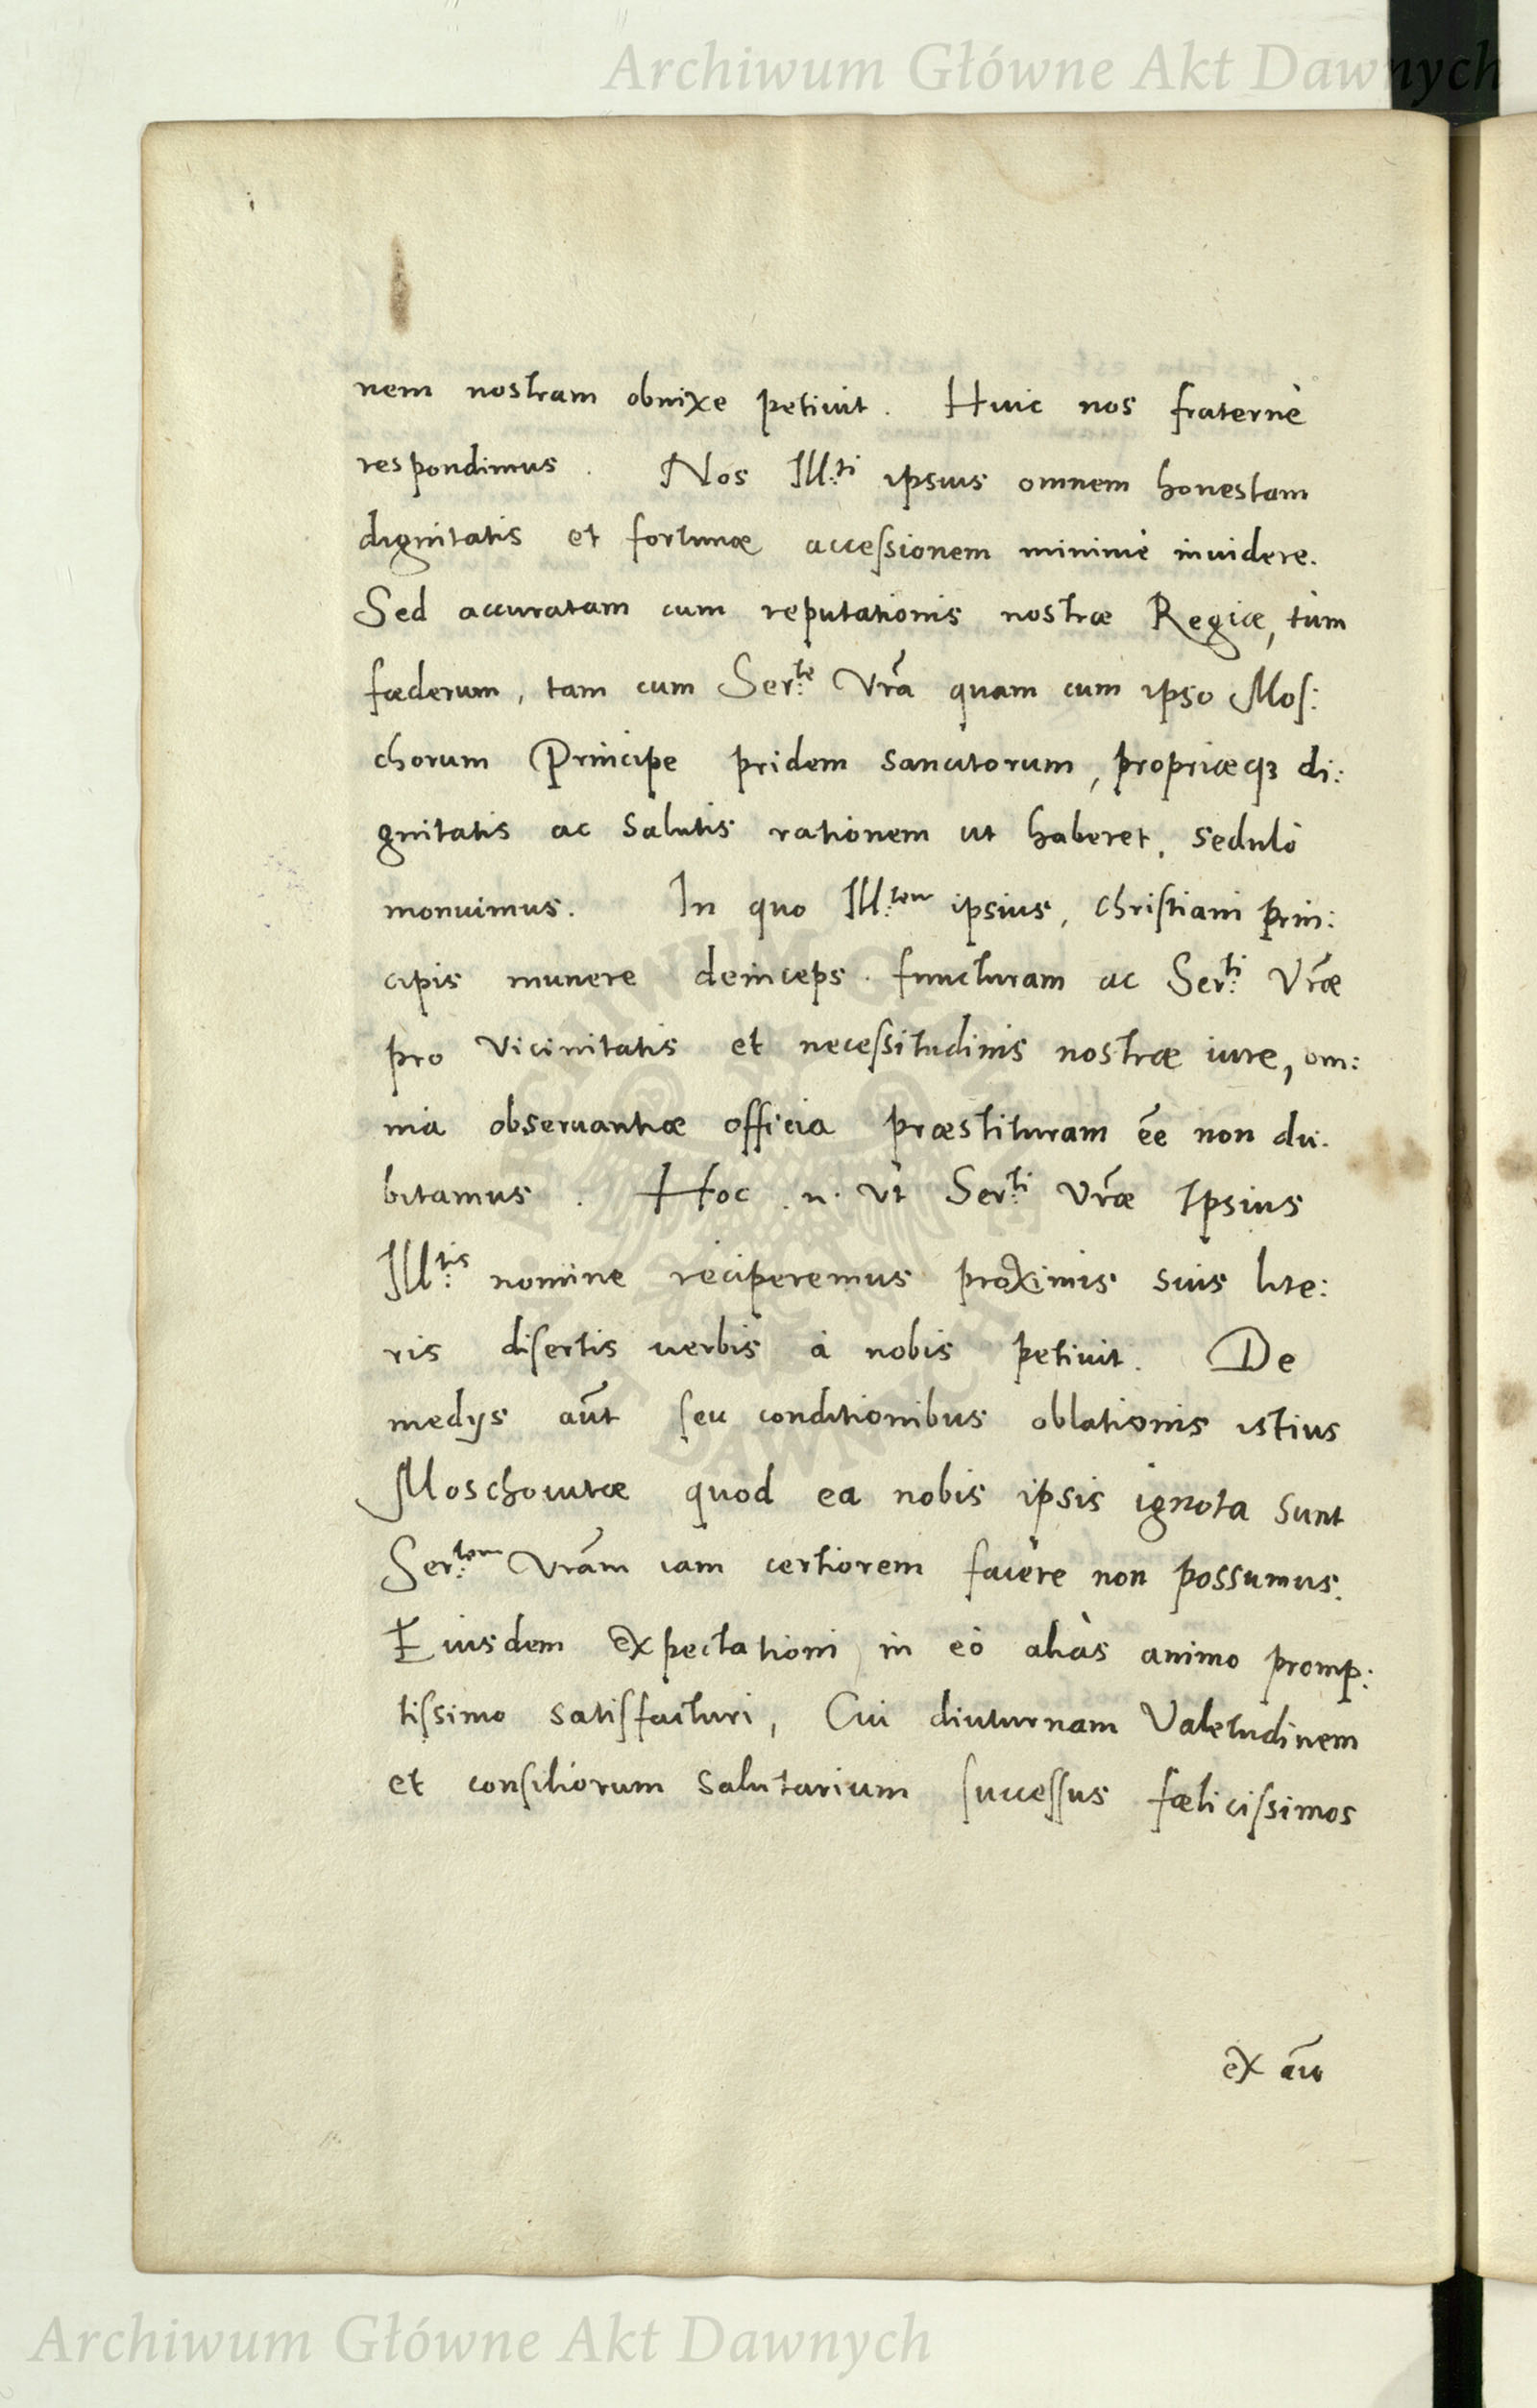 Archiwum Główne Akt Dawnych
nem nostram obnixe petiuit. Huic nos fraternè
respondimus. Nos Ill:ti ipsius omnem honestam
dignitatis et fortunæ accessionem minimè inuidere.
Sed accuratam cum reputationis nostræ Regiæ, tùm
fœderum, tam cum Ser:te Vr̃a quam cum ipso Mos:
chorum Principe pridem sancitorum, propriæq3 di:
gnitatis ac salutis rationem ut haberet, sedulò
monuimus. In quo Ill:tem ipsius, christiani prin:
cipis munere deinceps functuram ac Ser:ti Vr̃æ
pro vicinitatis et necessitudinis nostræ iure, om:
nia obseruantiæ officia præstituram ẽe non du:
bitamus. Hoc .n. ut Ser:ti Vr̃æ Ipsius
Ill:tis nomine reciperemus proximis suis lite:
ris disertis uerbis à nobis petiuit. De
medijs aũt seu conditionibus oblationis istius
Moschouitæ quòd ea nobis ipsis ignota sunt
Ser:tem Vr̃am iam certiorem facere non possumus.
Eiusdem expectationi in eò aliàs animo promp:
tissimo satisfacturi, Cui diuturnam Valetudinem
et consiliorum salutarium successus fœlicissimos
ex aĩo
Archiwum Główne Akt Dawnych